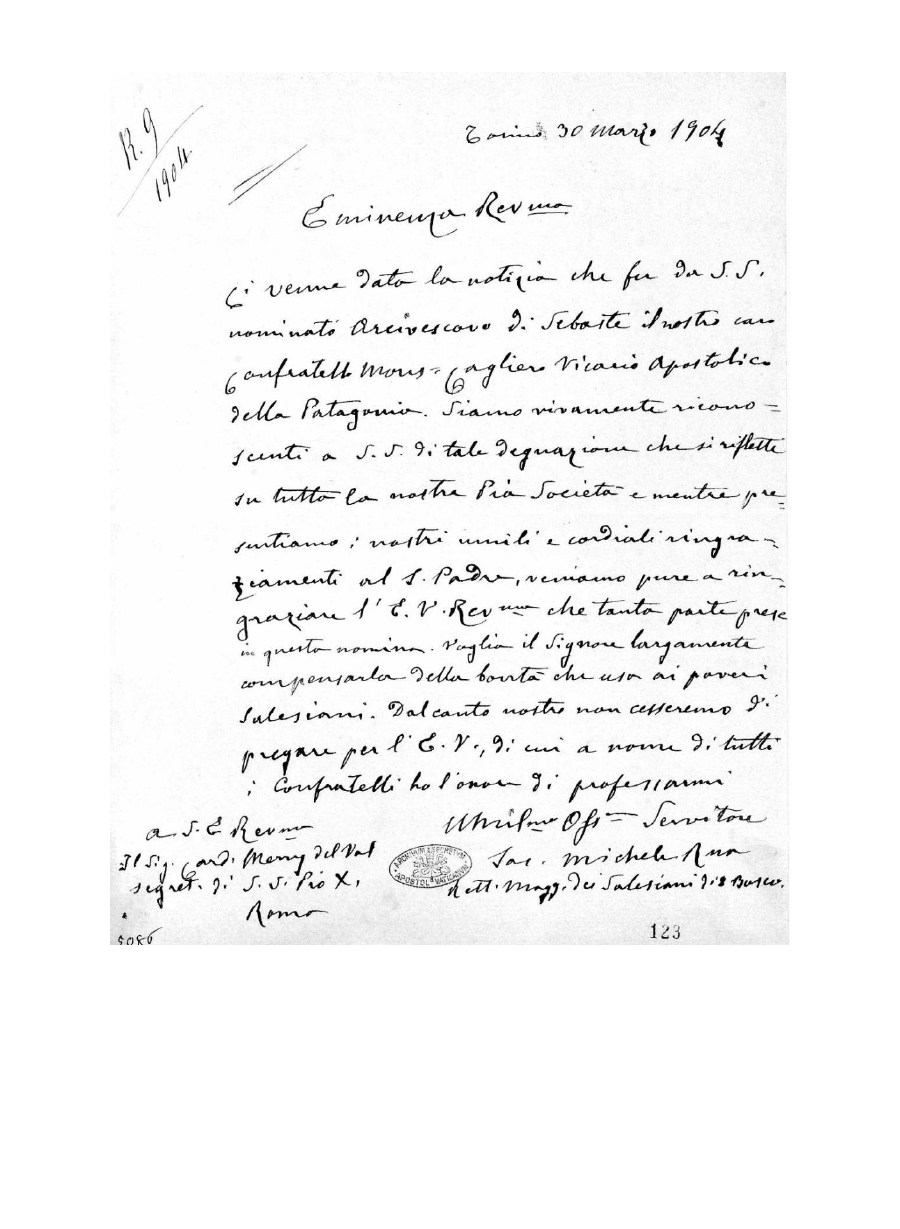 R. 9
1904.
Torino 30 Marzo 1904
Eminenza Revma
Ci venne data la notizia che fu da S. S.
nominato Arcivescovo di Sebaste il nostro caro
Confratello Mons= Cagliero Vicario Apostolico
della Patagonia. Siamo vivamente ricono=
scenti a S. S. di tale degnazione che si riflette
su tutta la nostra Pia Società e mentre pre=
sentiamo i nostri umili e cordiali ringra=
ziamenti al S. Padre, veniamo pure a rin=
graziare l'E. V. Revma che tanta parte prese
in questa nomina. Voglia il Signore largamente
compensarla della bontà che usa ai poveri
Salesiani. Dal canto nostro non cesseremo di
pregare per l'E. V., di cui a nome di tutti
i Confratelli ho l'onore di professarmi
Umilmo Obb= Servitore
Sac. Michele Rua
Rett. Magg. dei Salesiani di D Bosco.
a S. E Revma
Il Sig. Card. Merry del Val
Segret. di S. S. Pio X.
Roma
ARCHIVUM SECRETUM APOSTOL. VATICANUM
123